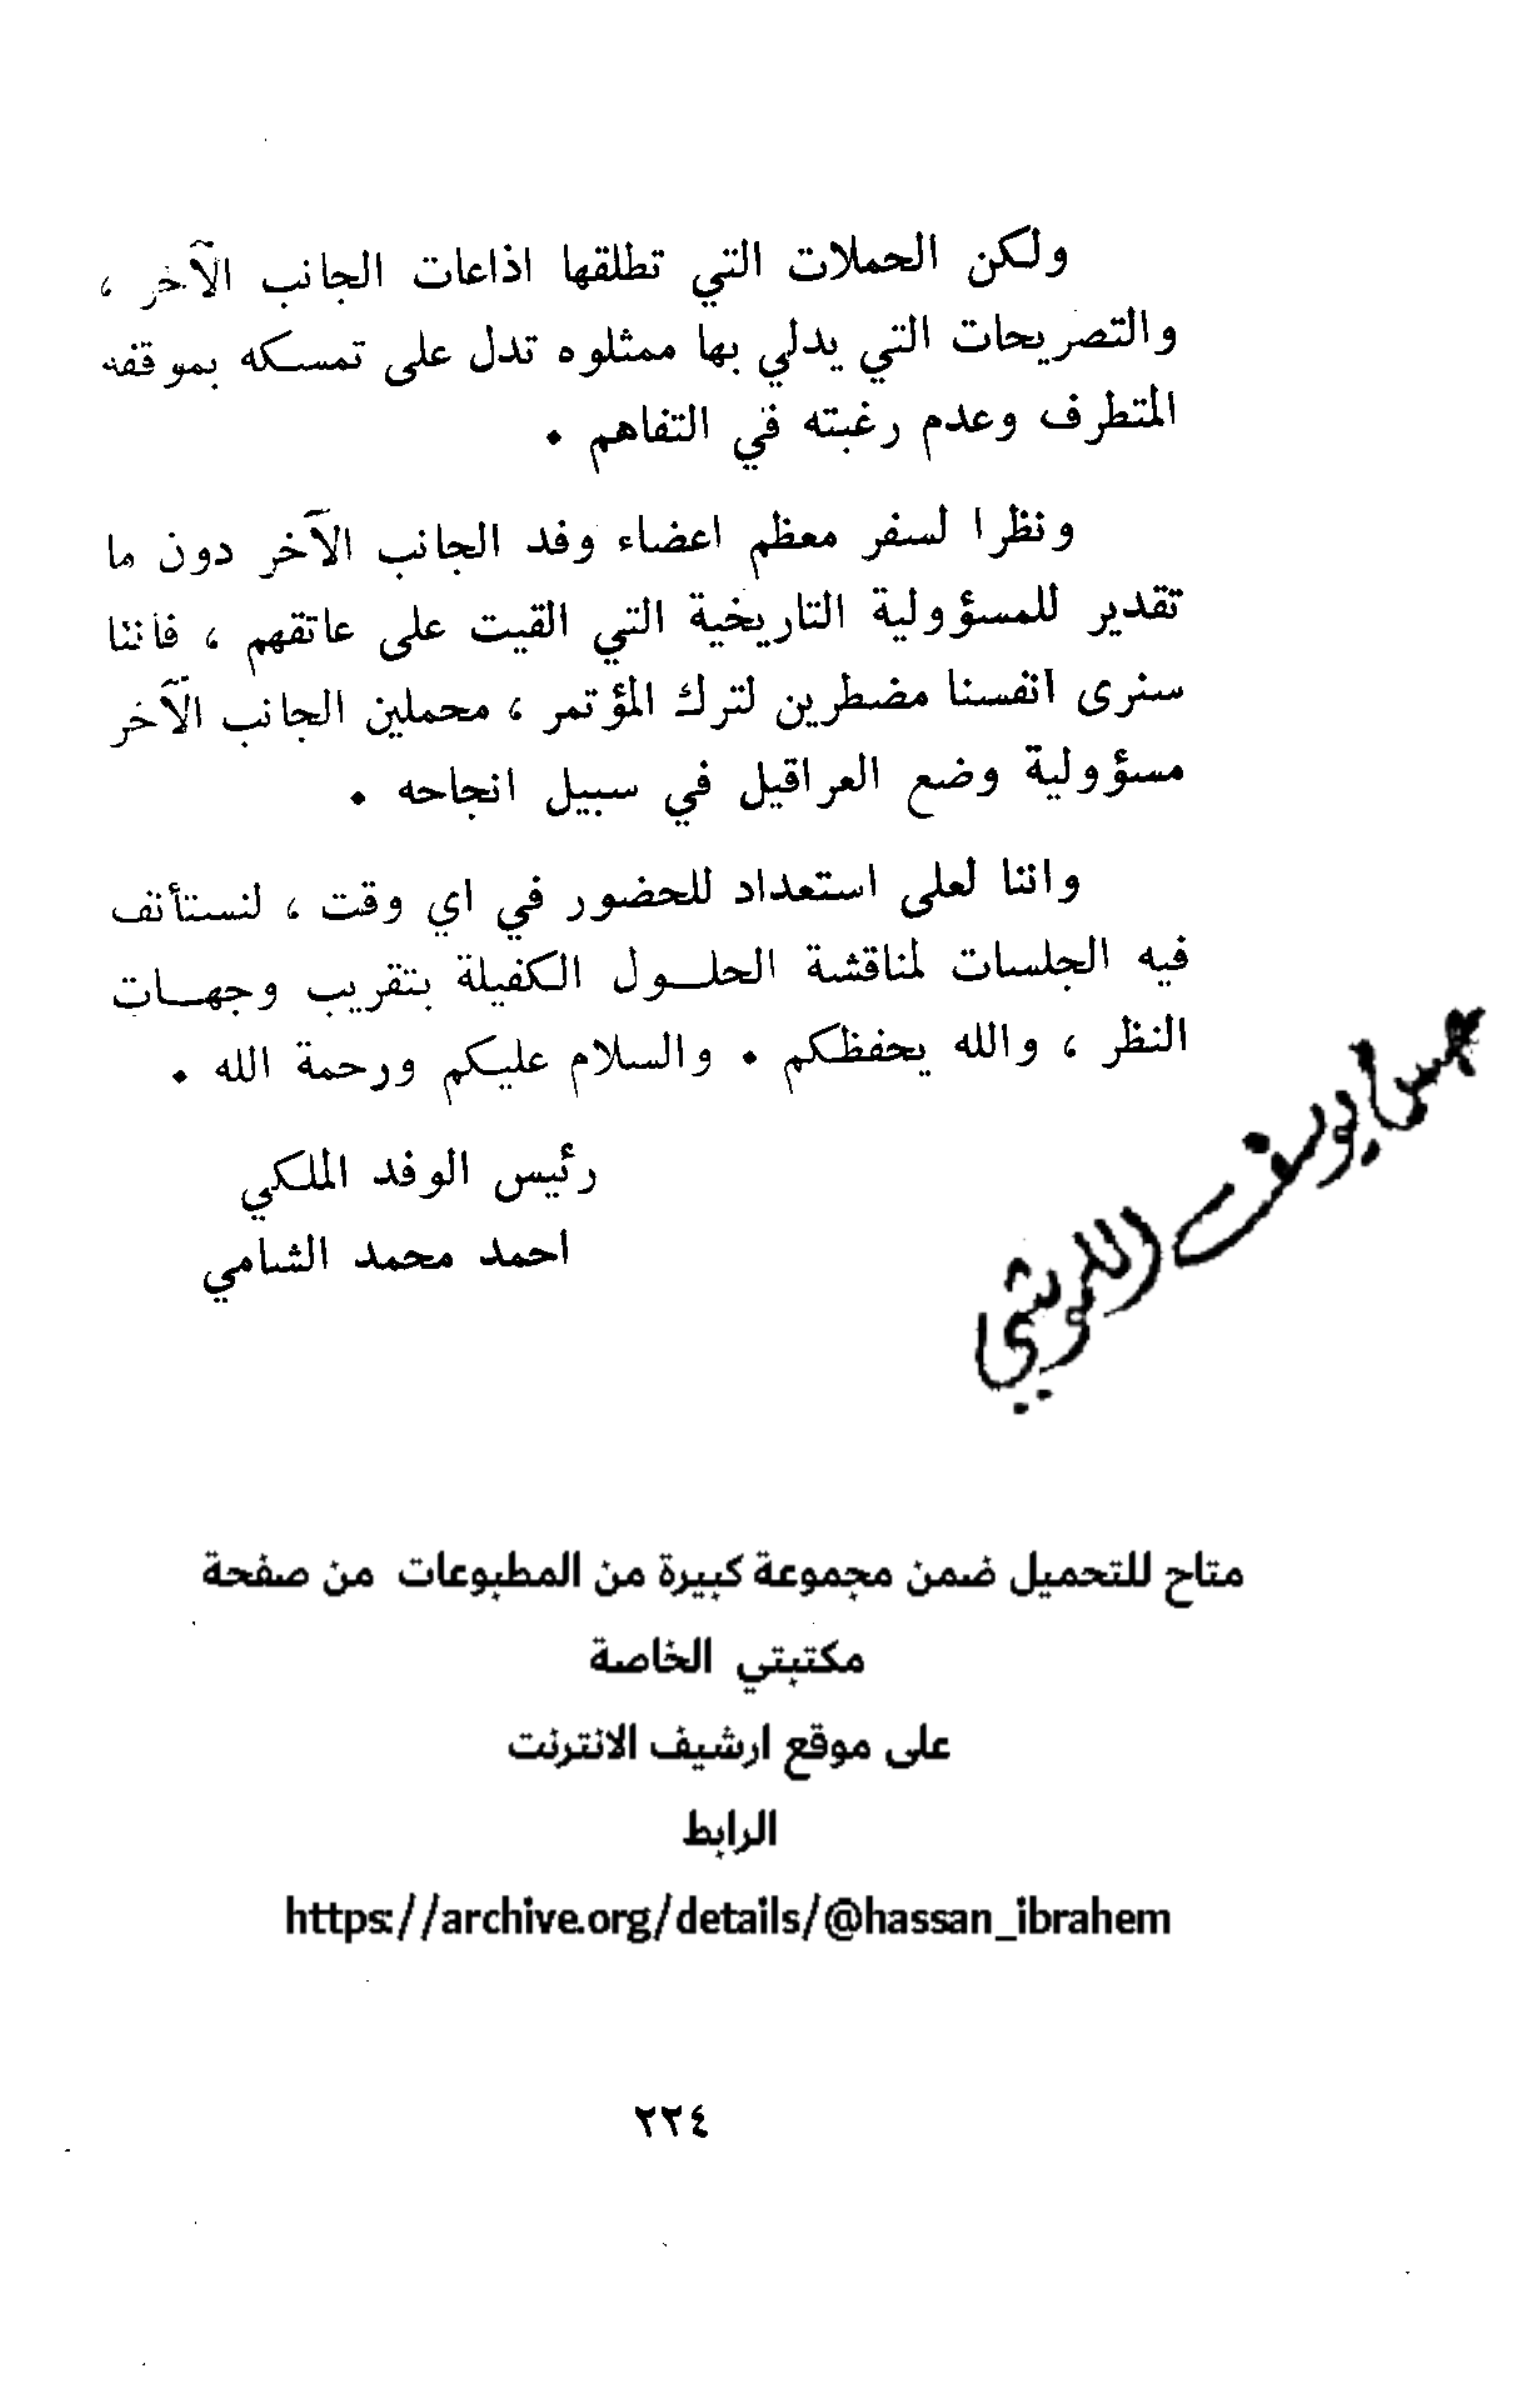 ولكن الحملات التي تطلقها اذاعات الجانب الآخر ،
والتصريحات التي يدلي بها ممثلوه تدل على تمسكه بموقفه
المتطرف وعدم رغبته في التفاهم .
ونظرا لسفر معظم اعضاء وفد الجانب الآخر دون ما
تقدير للمسؤولية التاريخية التي القيت على عاتقهم ، فاننا
سنرى انفسنا مضطرين لترك المؤتمر ، محملين الجانب الآخر
مسؤولية وضع العراقيل في سبيل انجاحه .
واننا لعلى استعداد للحضور في اي وقت ، لنستأنف
فيه الجلسات لمناقشة الحلــول الكفيلة بتقريب وجهــات
النظر ، والله يحفظكم . والسلام عليكم ورحمة الله .
رئيس الوفد الملكي
احمد محمد الشامي
يوسف
متاح للتحميل ضمن مجموعة كبيرة من المطبوعات من صفحة
مكتبتي الخاصة
على موقع ارشيف الانترنت
الرابط
https://archive.org/details/@hassan_ibrahem
٢٢٤